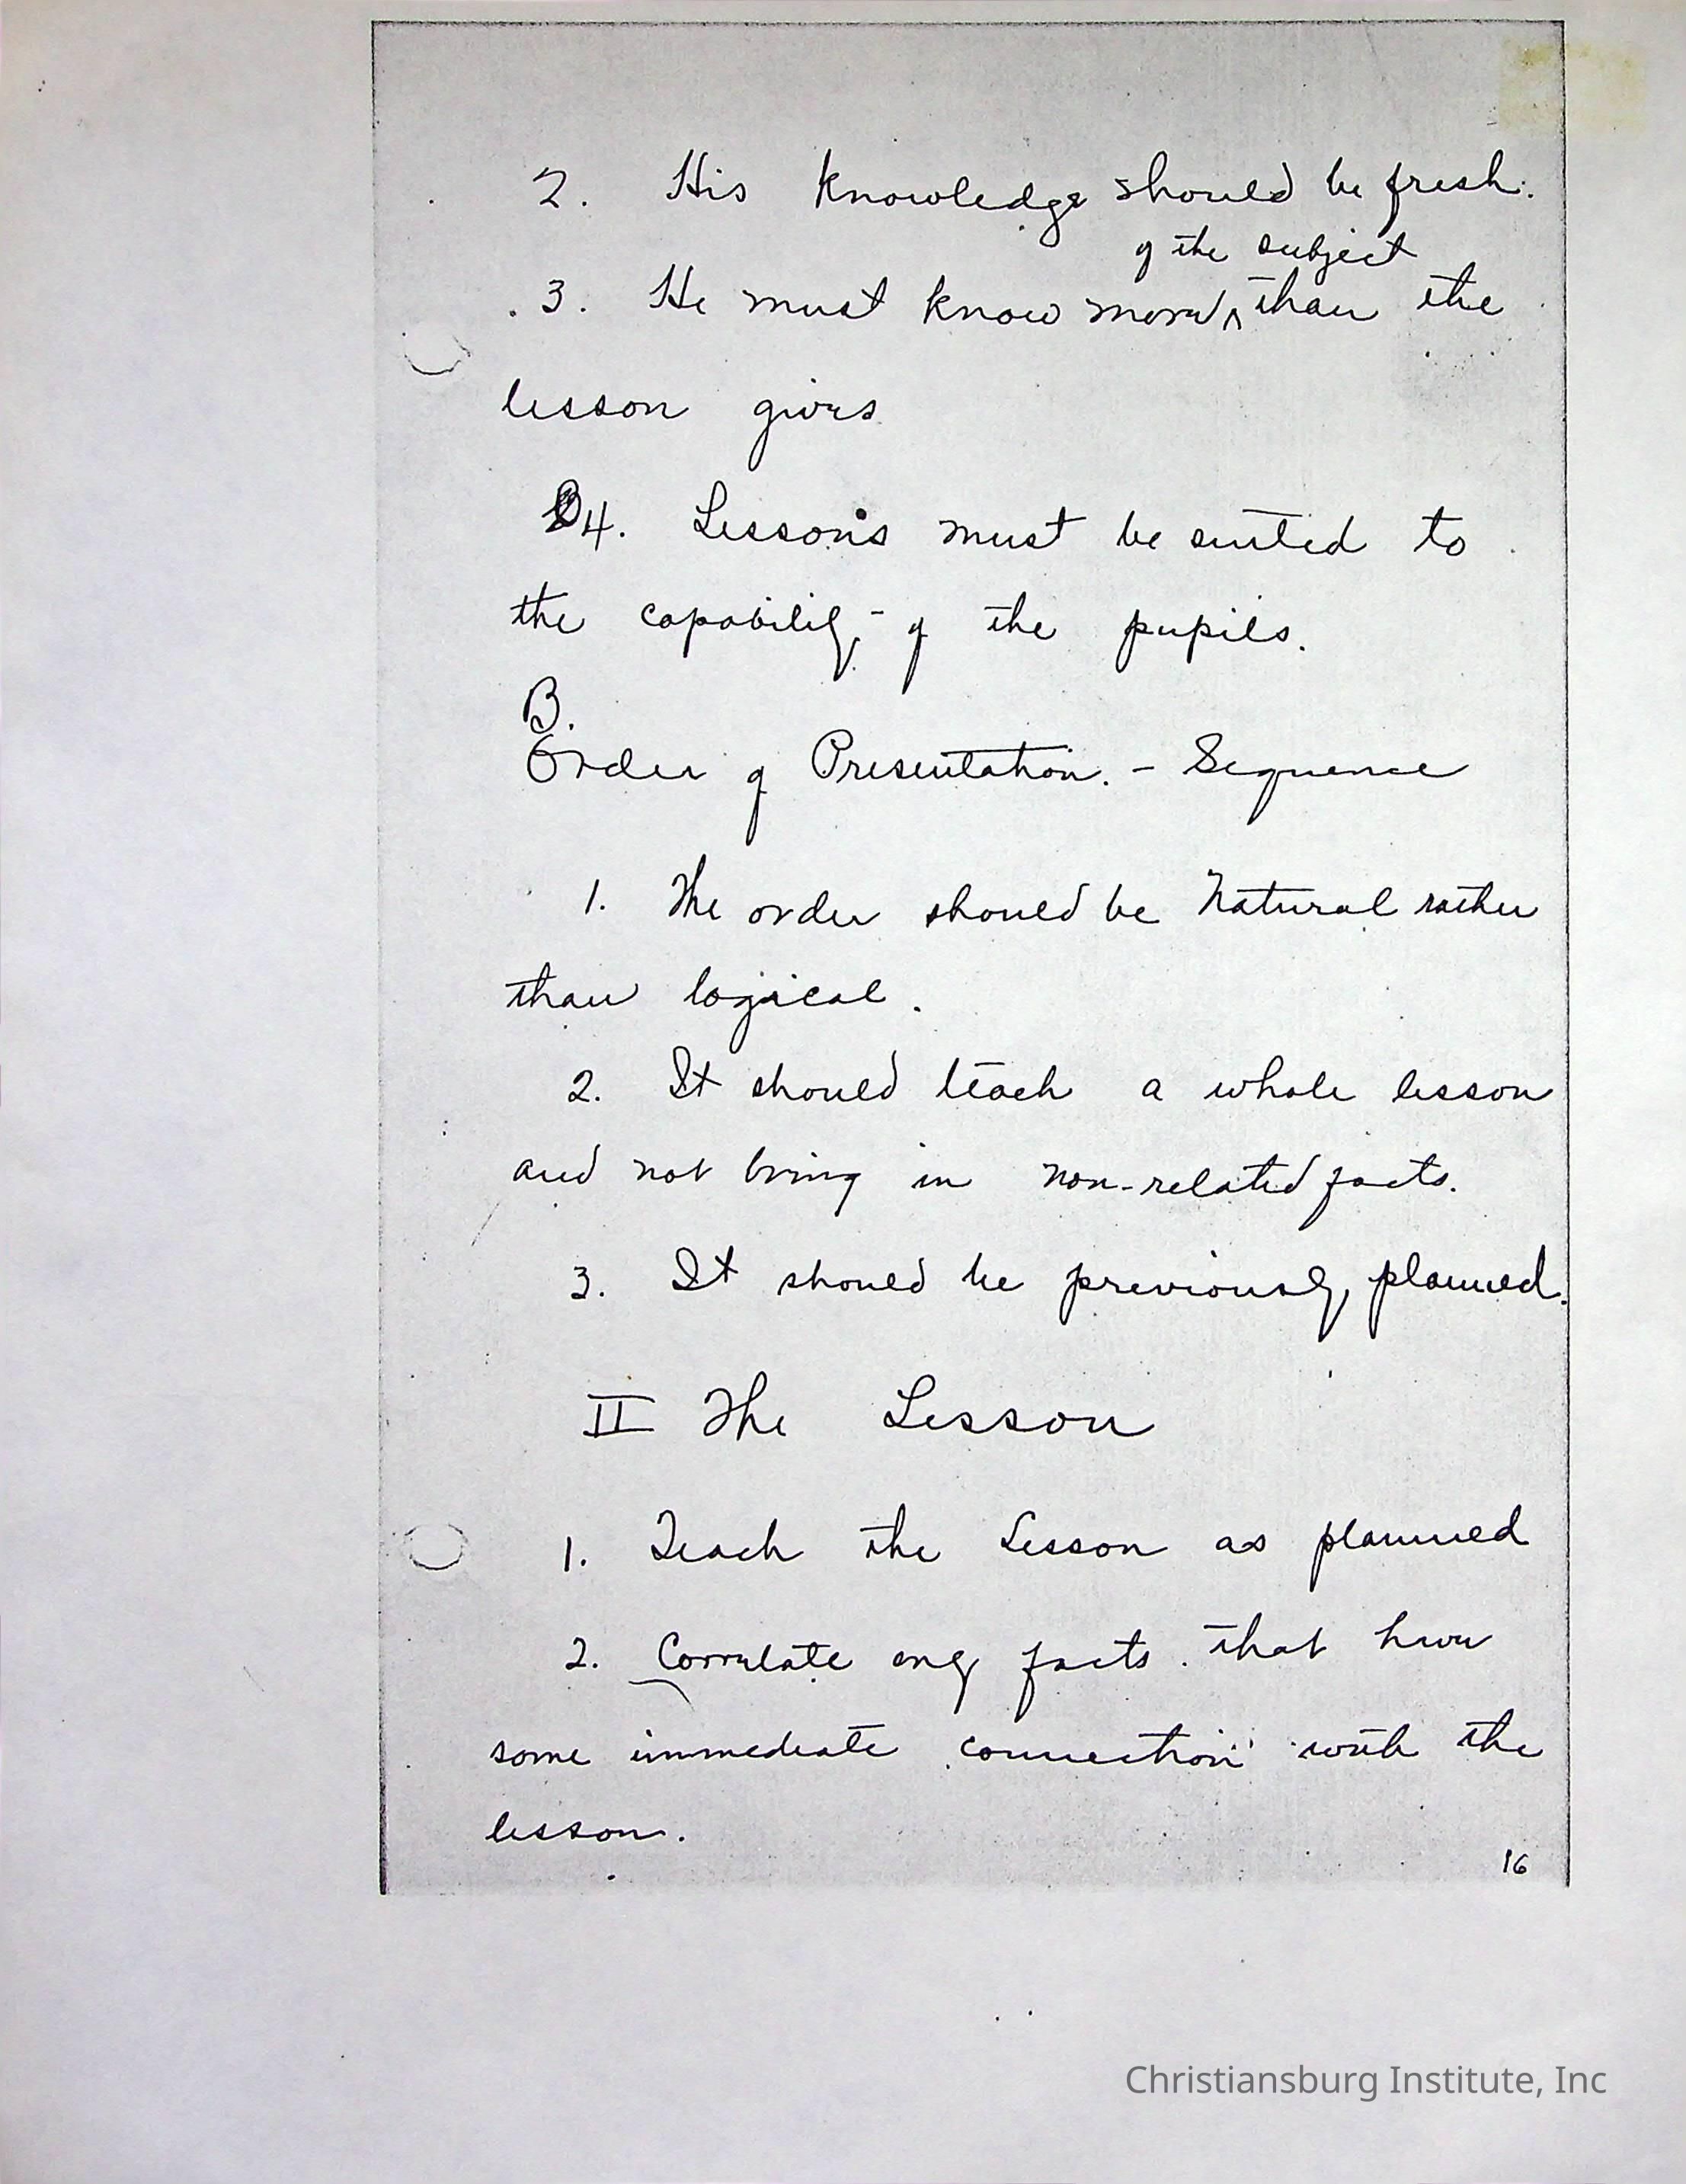 2. His knowledge should be fresh.
of the subject
3. He must know more ^ than the
lesson gives
4. Lessons must be suited to
the capability of the pupils.
B.
Order of Presentation. - Sequence
1. The order should be Natural rather
than logical.
2. It should teach a whole lesson
and not bring in non-related facts.
3. It should be previously planned.
II The Lesson
1. Teach the Lesson as planned
2. Correlate only facts that have
some immediate connection with the
lesson.
16
Christiansburg Institute, Inc